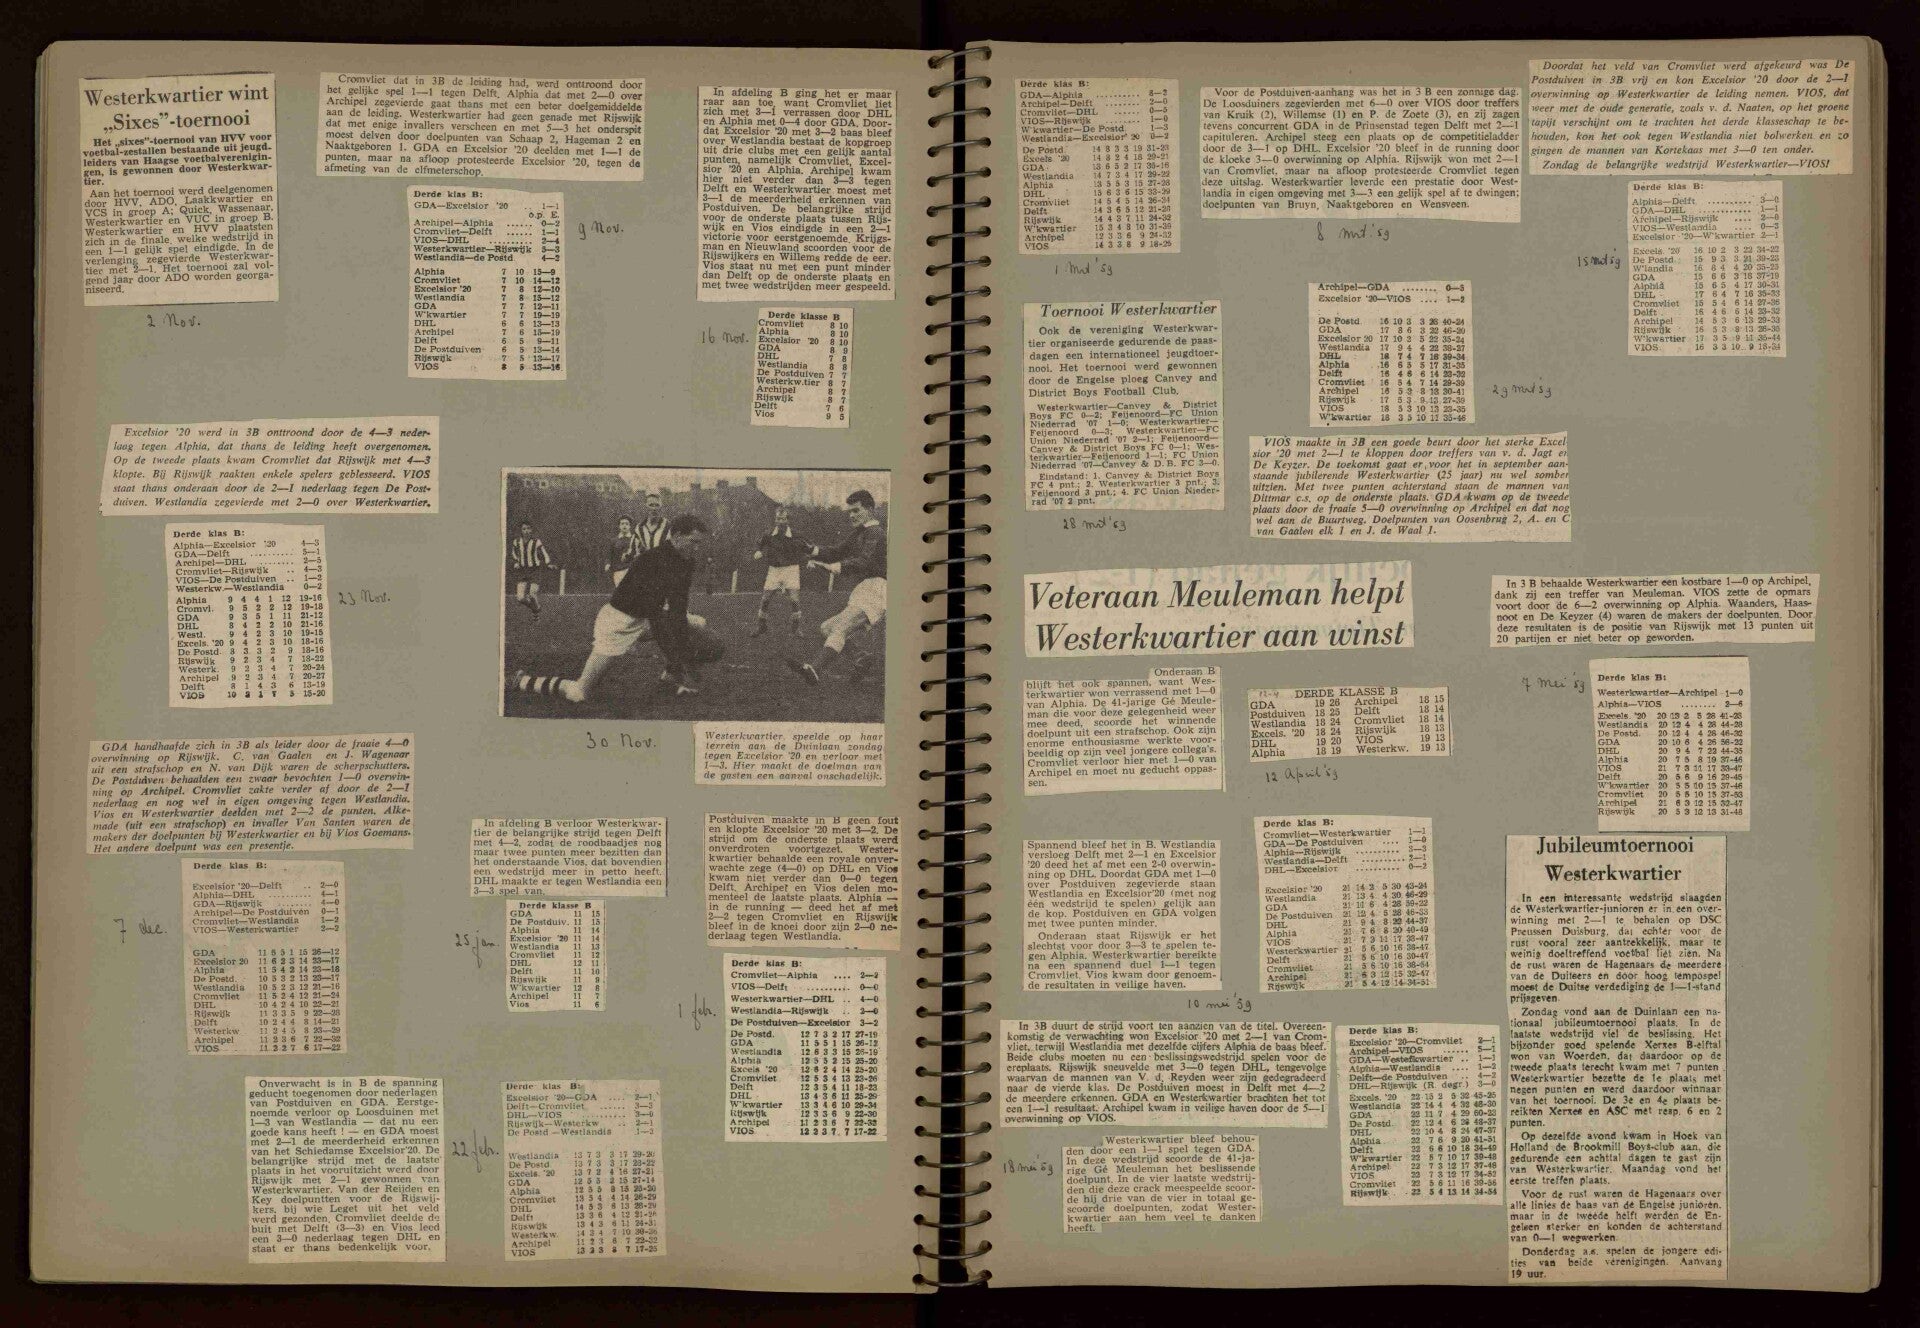 Westerkwartier wint
„Sixes"-toernooi
Het „sixes"-toernooi van HVV voor
voetbal-zestallen bestaande uit jeugd-
leiders van Haagse voetbalverenigin-
gen, is gewonnen door Westerkwar-
tier.
Aan het toernooi werd deelgenomen
door HVV, ADO, Laakkwartier en
VCS in groep A; Quick, Wassenaar,
Westerkwartier en VUC in groep B.
Westerkwartier en HVV plaatsten
zich in de finale, welke wedstrijd in
een 1—1 gelijk spel eindigde. In de
verlenging zegevierde Westerkwar-
tier met 2—1. Het toernooi zal vol-
gend jaar door ADO worden georga-
niseerd.
2 Nov.
Cromvliet dat in 3B de leiding had, werd onttroond door
het gelijke spel 1—1 tegen Delft. Alphia dat met 2—0 over
Archipel zegevierde gaat thans met een beter doelgemiddelde
aan de leiding. Westerkwartier had geen genade met Rijswijk
dat met enige invallers verscheen en met 5—3 het onderspit
moest delven door doelpunten van Schaap 2, Hageman 2 en
Naaktgeboren 1. GDA en Excelsior '20 deelden met 1—1 de
punten, maar na afloop protesteerde Excelsior '20, tegen de
afmeting van de elfmeterschop.
Derde klas B:
GDA—Excelsior '20 .. 1—1
o.p. E.
Archipel—Alphia ...... 0—2
Cromvliet—Delft ...... 1—1
VIOS—DHL ........ 2—4
Westerkwartier—Rijswijk 5—3
Westlandia—de Postd 4—2
Alphia 7 10 15—9
Cromvliet 7 10 14—12
Excelsior '20 7 8 12—10
Westlandia 7 8 15—12
GDA 7 7 12—11
W'kwartier 7 7 19—19
DHL 6 6 13—13
Archipel 7 6 15—19
Delft 6 5 9—11
De Postduiven 6 5 13—14
Rijswijk 7 5 13—17
VIOS 8 5 13—16
9 Nov.
In afdeling B ging het er maar
raar aan toe, want Cromvliet liet
zich met 3—1 verrassen door DHL
en Alphia met 0—4 door GDA. Door-
dat Excelsior '20 met 3—2 baas bleef
over Westlandia bestaat de kopgroep
uit drie clubs met een gelijk aantal
punten, namelijk Cromvliet, Excel-
sior '20 en Alphia. Archipel kwam
hier niet verder dan 3—3 tegen
Delft en Westerkwartier moest met
3—1 de meerderheid erkennen van
Postduiven. De belangrijke strijd
voor de onderste plaats tussen Rijs-
wijk en Vios eindigde in een 2—1
victorie voor eerstgenoemde. Krijgs-
man en Nieuwland scoorden voor de
Rijswijkers en Willems redde de eer.
Vios staat nu met een punt minder
dan Delft op de onderste plaats en
met twee wedstrijden meer gespeeld.
16 Nov.
Derde klasse B
Cromvliet 8 10
Alphia 8 10
Excelsior '20 8 10
GDA 8 9
DHL 7 8
Westlandia 8 8
De Postduiven 7 7
Westerkw.tier 8 7
Archipel 8 7
Rijswijk 8 7
Delft 7 6
Vios 9 5
Excelsior '20 werd in 3B onttroond door de 4—3 neder-
laag tegen Alphia, dat thans de leiding heeft overgenomen.
Op de tweede plaats kwam Cromvliet dat Rijswijk met 4—3
klopte. Bij Rijswijk raakten enkele spelers geblesseerd. VIOS
staat thans onderaan door de 2—1 nederlaag tegen De Post-
duiven. Westlandia zegevierde met 2—0 over Westerkwartier.
Derde klas B:
Alphia—Excelsior '20 4—3
GDA—Delft .......... 5—1
Archipel—DHL ...... 2—5
Cromvliet—Rijswijk .. 4—3
VIOS—De Postduiven .. 1—2
Westerkw.—Westlandia 0—2
Alphia 9 4 4 1 12 19-16
Cromvl. 9 5 2 2 12 19-18
GDA 9 3 5 1 11 21-12
DHL 8 4 2 2 10 21-16
Westl. 9 4 2 3 10 19-15
Excels. '20 9 4 2 3 10 18-16
De Postd. 8 3 3 2 9 18-16
Rijswijk 9 2 3 4 7 18-22
Westerk. 9 2 3 4 7 20-24
Archipel 9 2 3 4 7 20-27
Delft 8 1 4 3 6 13-19
VIOS 10 15-20
23 Nov.
30 Nov.
Westerkwartier speelde op haar
terrein aan de Duinlaan zondag
tegen Excelsior '20 en verloor met
1—3. Hier maakt de doelman van
de gasten een aanval onschadelijk.
GDA handhaafde zich in 3B als leider door de fraaie 4—0
overwinning op Rijswijk. C. van Gaalen en J. Wagenaar
uit een strafschop en N. van Dijk waren de scherpschutters.
De Postduiven behaalden een zwaar bevochten 1—0 overwin-
ning op Archipel. Cromvliet zakte verder af door de 2—1
nederlaag en nog wel in eigen omgeving tegen Westlandia.
Vios en Westerkwartier deelden met 2—2 de punten. Alke-
made (uit een strafschop) en invaller Van Santen waren de
makers der doelpunten bij Westerkwartier en bij Vios Goemans.
Het andere doelpunt was een presentje.
7 dec.
Derde klas B:
Excelsior '20—Delft .. 2—0
Alphia—DHL ........ 4—1
GDA—Rijswijk ...... 4—0
Archipel—De Postduiven 0—1
Cromvliet—Westlandia 1—2
VIOS—Westerkwartier 2—2
GDA 11 5 5 1 15 26—12
Excelsior 20 11 6 2 3 14 23—17
Alphia 11 5 4 2 14 23—18
De Postd. 10 5 3 2 13 20—17
Westlandia 10 5 2 3 12 21—16
Cromvliet 11 5 2 4 12 21—24
DHL 10 4 2 4 10 22—21
Rijswijk 11 3 3 5 9 22—28
Delft 10 2 4 4 8 14—21
Westerkw 11 2 4 5 8 23—29
Archipel 11 2 3 6 7 22—32
VIOS 11 2 3 6 7 17—22
In afdeling B verloor Westerkwar-
tier de belangrijke strijd tegen Delft
met 4—2, zodat de roodbaadjes nog
maar twee punten meer bezitten dan
het onderstaande Vios, dat bovendien
een wedstrijd meer in petto heeft.
DHL maakte er tegen Westlandia een
3—3 spel van.
25 jan.
Derde klasse B
GDA 11 15
De Postduiv. 11 15
Alphia 11 14
Excelsior '20 11 14
Westlandia 11 13
Cromvliet 11 12
DHL 12 11
Delft 11 10
Rijswijk 11 9
W'kwartier 12 8
Archipel 11 7
Vios 11 6
Postduiven maakte in B geen fout
en klopte Excelsior '20 met 3—2. De
strijd om de onderste plaats werd
onverdroten voortgezet. Wester-
kwartier behaalde een royale onver-
wachte zege (4—0) op DHL en Vios
kwam niet verder dan 0—0 tegen
Delft. Archipel en Vios delen mo-
menteel de laatste plaats. Alphia —
in de running — deed het af met
2—2 tegen Cromvliet en Rijswijk
bleef in de knoei door zijn 2—0 ne-
derlaag tegen Westlandia.
1 febr.
Derde klas B:
Cromvliet—Alphia .... 2—2
VIOS—Delft .......... 0—0
Westerkwartier—DHL .. 4—0
Westlandia—Rijswijk .. 2—0
De Postduiven—Excelsior 3—2
De Postd. 12 7 3 2 17 27-19
GDA 11 5 5 1 15 26-12
Westlandia 12 6 3 3 15 26-19
Alphia 12 5 5 2 15 25-20
Excels '20 12 6 2 4 14 25-20
Cromvliet 12 5 3 4 13 23-26
Delft 12 3 5 4 11 18-23
DHL 13 4 3 6 11 25-29
W'kwartier 13 3 4 6 10 29-34
Rijswijk 12 3 3 6 9 22-30
Archipel 11 2 3 6 7 22-32
VIOS 12 2 3 7 7 17-22
Onverwacht is in B de spanning
geducht toegenomen door nederlagen
van Postduiven en GDA. Eerstge-
noemde verloor op Loosduinen met
1—3 van Westlandia — dat nu een
goede kans heeft ! — en GDA moest
met 2—1 de meerderheid erkennen
van het Schiedamse Excelsior'20. De
belangrijke strijd met de laatste
plaats in het vooruitzicht werd door
Rijswijk met 2—1 gewonnen van
Westerkwartier. Van der Reijden en
Key doelpuntten voor de Rijswij-
kers, bij wie Leget uit het veld
werd gezonden. Cromvliet deelde de
buit met Delft (3—3) en Vios leed
een 3—0 nederlaag tegen DHL en
staat er thans bedenkelijk voor.
22 febr.
Derde klas B:
Excelsior '20—GDA .... 2—1
Delft—Cromvliet ...... 3—3
DHL—VIOS .......... 3—0
Rijswijk—Westerkw .. 2—1
De Postd —Westlandia 1—3
Westlandia 13 7 3 3 17 29-20
De Postd 13 7 3 3 17 23-22
Excels. '20 13 7 2 4 16 27-21
GDA 12 5 5 2 15 27-14
Alphia 12 5 5 2 15 25-20
Cromvliet 13 5 4 4 14 26-29
DHL 14 5 3 6 13 28-29
Delft 13 3 6 4 12 21-26
Rijswijk 13 4 3 6 11 24-31
Westerkw. 14 3 4 7 10 30-36
Archipel 11 2 3 6 7 22-32
VIOS 13 2 3 8 7 17-25
Derde klas B:
GDA—Alphia .......... 8—2
Archipel—Delft ...... 2—0
Cromvliet—DHL ...... 0—5
VIOS—Rijswijk ...... 1—0
W'kwartier—De Postd. 1—3
Westlandia—Excelsior '20 0—2
De Postd 14 8 3 3 19 31-23
Excels '20 14 8 2 4 18 29-21
GDA 13 6 5 2 17 35-16
Westlandia 14 7 3 4 17 29-22
Alphia 13 5 5 3 15 27-28
DHL 15 6 3 6 15 33-29
Cromvliet 14 5 4 5 14 26-34
Delft 14 3 6 5 12 21-28
Rijswijk 14 4 3 7 11 24-32
W'kwartier 15 3 4 8 10 31-39
Archipel 12 3 3 6 9 24-32
VIOS 14 3 3 8 9 18-25
1 mrt '59
Voor de Postduiven-aanhang was het in 3 B een zonnige dag.
De Loosduiners zegevierden met 6—0 over VIOS door treffers
van Kruik (2), Willemse (1) en P. de Zoete (3), en zij zagen
tevens concurrent GDA in de Prinsenstad tegen Delft met 2—1
capituleren. Archipel steeg een plaats op de competitieladder
door de 3—1 op DHL. Excelsior '20 bleef in de running door
de kloeke 3—0 overwinning op Alphia. Rijswijk won met 2—1
van Cromvliet, maar na afloop protesteerde Cromvliet tegen
deze uitslag. Westerkwartier leverde een prestatie door West-
landia in eigen omgeving met 3—3 een gelijk spel af te dwingen;
doelpunten van Bruyn, Naaktgeboren en Wensveen.
8 mrt '59
Doordat het veld van Cromvliet werd afgekeurd was De
Postduiven in 3B vrij en kon Excelsior '20 door de 2—1
overwinning op Westerkwartier de leiding nemen. VIOS, dat
weer met de oude generatie, zoals v. d. Naaten, op het groene
tapijt verschijnt om te trachten het derde klasseschap te be-
houden, kon het ook tegen Westlandia niet bolwerken en zo
gingen de mannen van Kortekaas met 3—0 ten onder.
Zondag de belangrijke wedstrijd Westerkwartier—VIOS!
15 mrt '59
Derde klas B:
Alphia—Delft ........ 3—0
GDA—DHL .......... 1—1
Archipel—Rijswijk .... 2—0
VIOS—Westlandia .... 0—3
Excelsior '20—W'kwartier 2—1
Excels. '20 16 10 2 4 22 34-22
De Postd. 15 9 3 3 21 39-23
W'landia 16 8 4 4 20 35-25
GDA 15 6 6 3 18 37-19
Alphia 15 6 5 4 17 30-31
DHL 17 6 4 7 16 35-33
Cromvliet 15 5 4 6 14 27-36
Delft 16 4 6 6 14 23-32
Archipel 14 5 3 6 13 29-33
Rijswijk 16 5 3 8 13 26-35
W'kwartier 17 3 5 9 11 35-44
VIOS. 16 3 3 10 9 18-34
Toernooi Westerkwartier
Ook de vereniging Westerkwar-
tier organiseerde gedurende de paas-
dagen een internationeel jeugdtoer-
nooi. Het toernooi werd gewonnen
door de Engelse ploeg Canvey and
District Boys Football Club.
Westerkwartier—Canvey & District
Boys FC 0—2; Feijenoord—FC Union
Niederrad '07 1—0; Westerkwartier—
Feijenoord 0—3; Westerkwartier—FC
Union Niederrad '07 2—1; Feijenoord—
Canvey & District Boys FC 0—1; Wes-
terkwartier—Feijenoord 1—1; FC Union
Niederrad '07—Canvey & D.B. FC 3—0.
Eindstand: 1. Canvey & District Boys
FC 4 pnt.; 2. Westerkwartier 3 pnt.; 3.
Feijenoord 3 pnt.; 4. FC Union Nieder-
rad '07 2 pnt.
28 mrt '59
Archipel—GDA ........ 0—5
Excelsior '20—VIOS .... 1—2
De Postd. 16 10 3 3 40-24
GDA 17 8 6 3 22 46-20
Excelsior 20 17 10 2 5 22 35-24
Westlandia 17 9 4 4 22 38-27
DHL 18 7 4 7 18 39-34
Alphia 16 6 5 5 17 31-35
Delft 16 4 6 6 14 23-32
Cromvliet 16 5 4 7 14 29-39
Archipel 16 5 3 8 13 30-41
Rijswijk 17 5 3 9 13 27-39
VIOS 18 5 3 10 13 23-35
W'kwartier 18 3 5 10 11 35-46
29 mrt '59
VIOS maakte in 3B een goede beurt door het sterke Excel-
sior '20 met 2—1 te kloppen door treffers van v. d. Jagt en
De Keyzer. De toekomst gaat er voor het in september aan-
staande jubilerende Westerkwartier (25 jaar) nu wel somber
uitzien. Met twee punten achterstand staan de mannen van
Dittmar c.s. op de onderste plaats. GDA kwam op de tweede
plaats door de fraaie 5—0 overwinning op Archipel en dat nog
wel aan de Buurtweg. Doelpunten van Oosenbrug 2, A. en C.
van Gaalen elk 1 en J. de Waal 1.
Veteraan Meuleman helpt
Westerkwartier aan winst
Onderaan B
blijft het ook spannen, want Wes-
terkwartier won verrassend met 1—0
van Alphia. De 41-jarige Gé Meule-
man die voor deze gelegenheid weer
mee deed, scoorde het winnende
doelpunt uit een strafschop. Ook zijn
enorme enthousiasme werkte voor-
beeldig op zijn veel jongere collega's.
Cromvliet verloor hier met 1—0 van
Archipel en moet nu geducht oppas-
sen.
12-4 DERDE KLASSE B
GDA 19 26 Archipel 18 15
Postduiven 18 25 Delft 18 14
Westlandia 18 24 Cromvliet 18 14
Excels. '20 18 24 Rijswijk 18 13
DHL 19 20 VIOS 19 13
Alphia 18 19 Westerkw. 19 13
12 April '59
In 3 B behaalde Westerkwartier een kostbare 1—0 op Archipel,
dank zij een treffer van Meuleman. VIOS zette de opmars
voort door de 6—2 overwinning op Alphia. Waanders, Haas-
noot en De Keyzer (4) waren de makers der doelpunten. Door
deze resultaten is de positie van Rijswijk met 13 punten uit
20 partijen er niet beter op geworden.
7 mei '59
Derde klas B:
Westerkwartier—Archipel 1—0
Alphia—VIOS ........ 2—6
Excels. '20 20 13 2 5 28 41-23
Westlandia 20 12 4 4 28 44-28
De Postd. 20 12 4 4 28 46-32
GDA 20 10 6 4 26 56-22
DHL 20 9 4 7 22 44-35
Alphia 20 7 5 8 19 37-46
VIOS 21 7 3 11 17 39-47
Delft 20 5 6 9 16 29-45
W'kwartier 20 5 5 10 15 37-46
Cromvliet 20 5 5 10 15 37-53
Archipel 21 6 3 12 15 32-47
Rijswijk 20 5 3 12 13 31-48
Spannend bleef het in B. Westlandia
versloeg Delft met 2—1 en Excelsior
'20 deed het af met een 2-0 overwin-
ning op DHL. Doordat GDA met 1—0
over Postduiven zegevierde staan
Westlandia en Excelsior'20 (met nog
één wedstrijd te spelen) gelijk aan
de kop. Postduiven en GDA volgen
met twee punten minder.
Onderaan staat Rijswijk er het
slechtst voor door 3—3 te spelen te-
gen Alphia. Westerkwartier bereikte
na een spannend duel 1—1 tegen
Cromvliet. Vios kwam door genoem-
de resultaten in veilige haven.
Cromvliet—Westerkwartier 1—1
GDA—De Postduiven .... 1—0
Alphia—Rijswijk ........ 3—3
Westlandia—Delft ........ 2—1
DHL—Excelsior ........ 0—2
Excelsior '20 21 14 2 5 30 43-24
Westlandia 21 13 4 4 30 46-29
GDA 21 11 6 4 28 59-22
De Postduiven 21 12 4 5 28 46-33
DHL 21 9 4 8 22 44-37
Alphia 21 7 6 8 20 40-49
VIOS 21 7 3 11 17 39-47
Westerkwartier 21 5 6 10 16 38-47
Delft 21 5 6 10 16 30-47
Cromvliet 21 5 6 10 16 38-54
Archipel 21 6 3 12 15 32-47
Rijswijk 21 5 4 12 14 34-51
10 mei '59
In 3B duurt de strijd voort ten aanzien van de titel. Overeen-
komstig de verwachting won Excelsior '20 met 2—1 van Crom-
vliet, terwijl Westlandia met dezelfde cijfers Alphia de baas bleef.
Beide clubs moeten nu een beslissingswedstrijd spelen voor de
ereplaats. Rijswijk sneuvelde met 3—0 tegen DHL, tengevolge
waarvan de mannen van V. d. Reyden weer zijn gedegradeerd
naar de vierde klas. De Postduiven moest in Delft met 4—2
de meerdere erkennen. GDA en Westerkwartier brachten het tot
een 1—1 resultaat. Archipel kwam in veilige haven door de 5—1
overwinning op VIOS.
18 mei '59
Westerkwartier bleef behou-
den door een 1—1 spel tegen GDA.
In deze wedstrijd scoorde de 41-ja-
rige Gé Meuleman het beslissende
doelpunt. In de vier laatste wedstrij-
den die deze crack meespeelde scoor-
de hij drie van de vier in totaal ge-
scoorde doelpunten, zodat Wester-
kwartier aan hem veel te danken
heeft.
Derde klas B:
Excelsior '20—Cromvliet 2—1
Archipel—VIOS ........ 5—1
GDA—Westerkwartier .. 1—1
Alphia—Westlandia .... 1—2
Delft—de Postduiven .. 4—2
DHL—Rijswijk (R. degr.) 3—0
Excels. '20 22 15 2 5 32 45-25
Westlandia 22 14 4 4 32 48-30
GDA 22 11 7 4 29 60-23
De Postd. 22 12 4 6 28 48-37
DHL 22 10 4 8 24 47-37
Alphia 22 7 6 9 20 41-51
Delft 22 6 6 10 18 34-49
W'kwartier 22 5 7 10 17 39-48
Archipel 22 7 3 12 17 37-48
VIOS 22 7 3 12 17 34-52
Cromvliet 22 5 6 11 16 39-56
Rijswijk 22 5 4 13 14 34-54
Jubileumtoernooi
Westerkwartier
In een interessante wedstrijd slaagden
de Westerkwartier-junioren er in een over-
winning met 2—1 te behalen op DSC
Preussen Duisburg, dat echter voor de
rust vooral zeer aantrekkelijk, maar te
weinig doeltreffend voetbal liet zien. Na
de rust waren de Hagenaars de meerdere
van de Duitsers en door hoog tempospel
moest de Duitse verdediging de 1—1-stand
prijsgeven.
Zondag vond aan de Duinlaan een na-
tionaal jubileumtoernooi plaats. In de
laatste wedstrijd viel de beslissing. Het
bijzonder goed spelende Xerxes B-elftal
won van Woerden, dat daardoor op de
tweede plaats terecht kwam met 7 punten.
Westerkwartier bezette de 1e plaats met
negen punten en werd daardoor winnaar
van het toernooi. De 3e en 4e plaats be-
reikten Xerxes en ASC met resp. 6 en 2
punten.
Op dezelfde avond kwam in Hoek van
Holland de Brookmill Boys-club aan, die
gedurende een achttal dagen te gast zijn
van Westerkwartier. Maandag vond het
eerste treffen plaats.
Voor de rust waren de Hagenaars over
alle linies de baas van de Engelse junioren.
maar in de tweede helft werden de En-
gelsen sterker en konden de achterstand
van 0—1 wegwerken.
Donderdag a.s. spelen de jongere edi-
ties van beide verenigingen. Aanvang
19 uur.